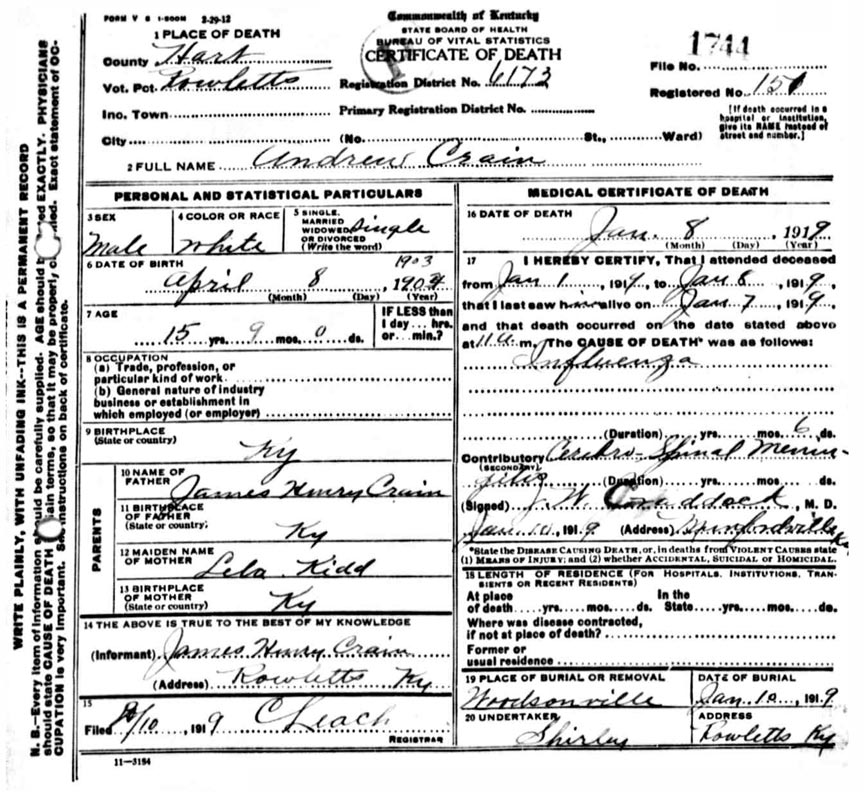 FORM V S 1-500M 2-29-12
Commonwealth of Kentucky
STATE BOARD OF HEALTH
BUREAU OF VITAL STATISTICS
CERTIFICATE OF DEATH
1744
File No.
Registered No. 151
[If death occurred in a
hospital or institution,
give its NAME instead of
street and number.]
1 PLACE OF DEATH
County Hart
Vot. Pct. Rowletts Registration District No. 6173
Inc. Town Primary Registration District No.
City (No. St., Ward)
2 FULL NAME Andrew Crain
PERSONAL AND STATISTICAL PARTICULARS
3 SEX
Male
4 COLOR OR RACE
White
5 SINGLE,
MARRIED
WIDOWED
OR DIVORCED
(Write the word)
Single
6 DATE OF BIRTH
1903
April 8, 1904
(Month) (Day) (Year)
7 AGE
15 yrs. 9 mos. 0 ds.
IF LESS than
1 day... hrs.
or... min.?
8 OCCUPATION
(a) Trade, profession, or
particular kind of work
(b) General nature of industry
business or establishment in
which employed (or employer)
9 BIRTHPLACE
(State or country)
Ky
PARENTS
10 NAME OF
FATHER
James Henry Crain
11 BIRTHPLACE
OF FATHER
(State or country)
Ky
12 MAIDEN NAME
OF MOTHER
Lela Kidd
13 BIRTHPLACE
OF MOTHER
(State or country)
Ky
14 THE ABOVE IS TRUE TO THE BEST OF MY KNOWLEDGE
(Informant) James Henry Crain
(Address) Rowletts Ky
15
Filed /10, 1919 C Leach
REGISTRAR
11-3184
MEDICAL CERTIFICATE OF DEATH
16 DATE OF DEATH
Jan. 8, 1919
(Month) (Day) (Year)
17 I HEREBY CERTIFY, That I attended deceased
from Jan 1, 1919, to Jan 8, 1919,
that I last saw him alive on Jan 7, 1919,
and that death occurred on the date stated above
at 11 a. m. The CAUSE OF DEATH* was as follows:
Influenza
(Duration) yrs. mos. 6 ds.
Contributory Cerebro-Spinal Menin-
(SECONDARY) gitis (Duration) yrs. mos. ds.
(Signed) J. W. Craddock, M. D.
Jan 10, 1919 (Address) Munfordville Ky
*State the DISEASE CAUSING DEATH, or, in deaths from VIOLENT CAUSES state
(1) MEANS OF INJURY; and (2) whether ACCIDENTAL, SUICIDAL or HOMICIDAL.
18 LENGTH OF RESIDENCE (FOR HOSPITALS, INSTITUTIONS, TRAN-
SIENTS OR RECENT RESIDENTS)
At place In the
of death yrs. mos. ds. State yrs. mos. ds.
Where was disease contracted,
if not at place of death?
Former or
usual residence
19 PLACE OF BURIAL OR REMOVAL
Woodsonville
DATE OF BURIAL
Jan 10, 1919
20 UNDERTAKER
Shirley
ADDRESS
Rowletts Ky
WRITE PLAINLY, WITH UNFADING INK--THIS IS A PERMANENT RECORD
N. B.--Every item of information should be carefully supplied. AGE should be EXACTLY. PHYSICIANS
should state CAUSE OF DEATH in plain terms, so that it may be properly Exact statement of OC-
CUPATION is very important. See instructions on back of certificate.